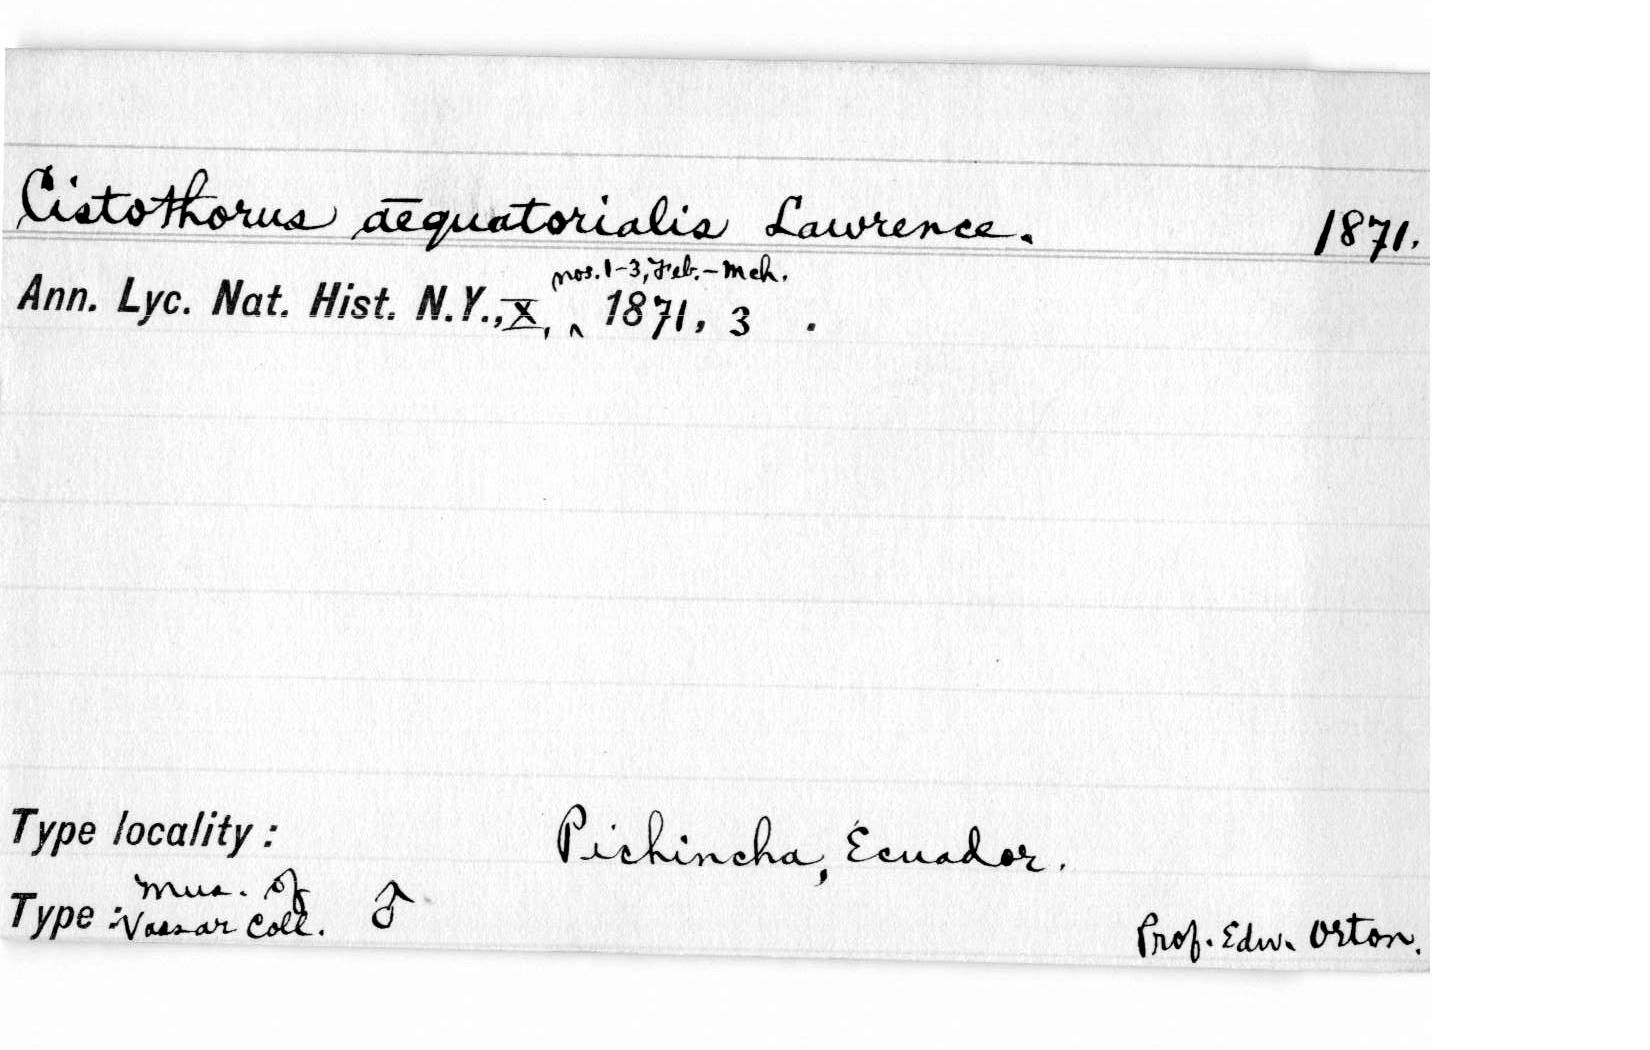 Cistothorus æquatorialis Lawrence. 1871.
nos. 1-3, Feb.-Mch.
Ann. Lyc. Nat. Hist. N.Y., X, ^ 1871, 3 .
Type locality: Pichincha, Ecuador.
Mus. of
Type: Vassar Coll. ♂ Prof. Edw. Orton.